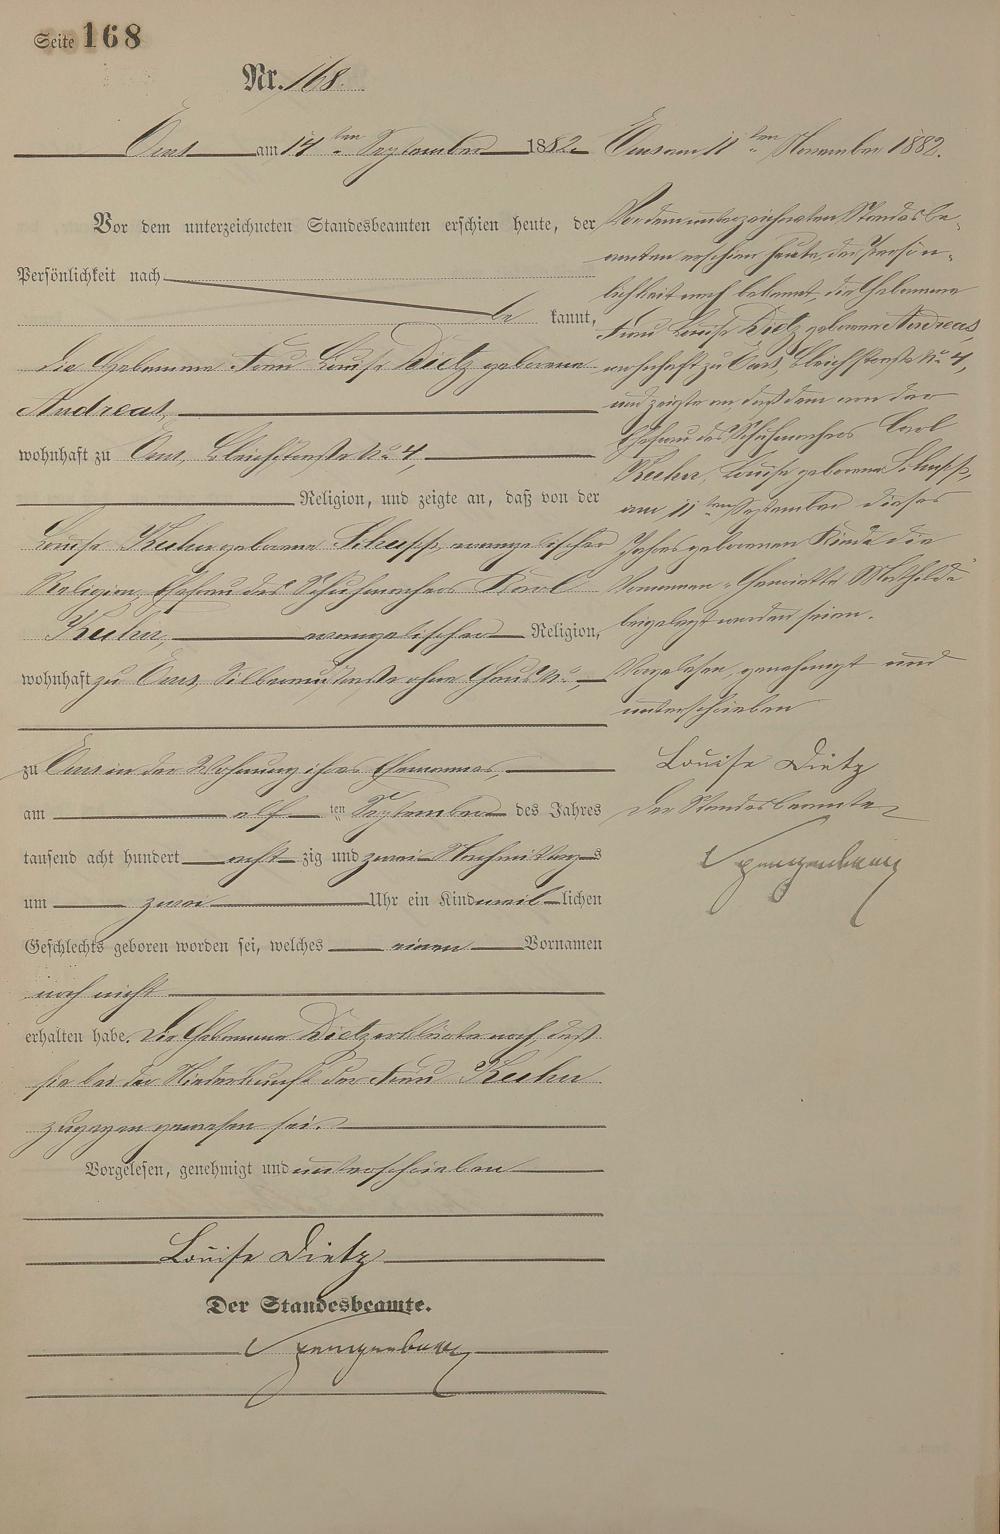 Seite 168
Nr. 168.
Ems am 14ten September 1882
Vor dem unterzeichneten Standesbeamten erschien heute, der
Persönlichkeit nach
be kannt,
die Hebamme Frau Louise Dietz geborene
Andreas,
wohnhaft zu Ems, Bleichstraße No 4,
Religion, und zeigte an, daß von der
Louise Kuhn geborene Schupp, evangelischer
Religion, Ehefrau des Schuhmachers Karl
Kuhn, evangelischer Religion,
wohnhaft zu Ems, Silberaustraße ohne Haus No,
zu Ems in der Wohnung ihres Ehemannes,
am elf ten September des Jahres
tausend acht hundert acht zig und zwei Nachmittags
um zwei Uhr ein Kind weib lichen
Geschlechts geboren worden sei, welches einen Vornamen
noch nicht
erhalten habe. Die Hebamme Dietz erklärte noch, daß
sie bei der Niederkunft der Frau Kuhn
zugegen gewesen sei.
Vorgelesen, genehmigt und unterschrieben
Louise Dietz
Der Standesbeamte.
Spangenberg
Ems am 11ten November 1882.
Vor dem unterzeichneten Standesbe-
amten erschien heute, der Persön-
lichkeit nach bekannt, die Hebamme
Frau Louise Dietz geborene Andreas,
wohnhaft zu Ems, Bleichstraße No 4,
und zeigte an, daß dem von der
Ehefrau des Schuhmachers Carl
Kuhn, Louise geborene Schupp,
am 11ten September dieses
Jahres geborenen Kinde die
Vornamen "Henriette Mathilde"
beigelegt worden seien.
Vorgelesen, genehmigt und
unterschrieben
Louise Dietz
Der Standesbeamte
Spangenberg